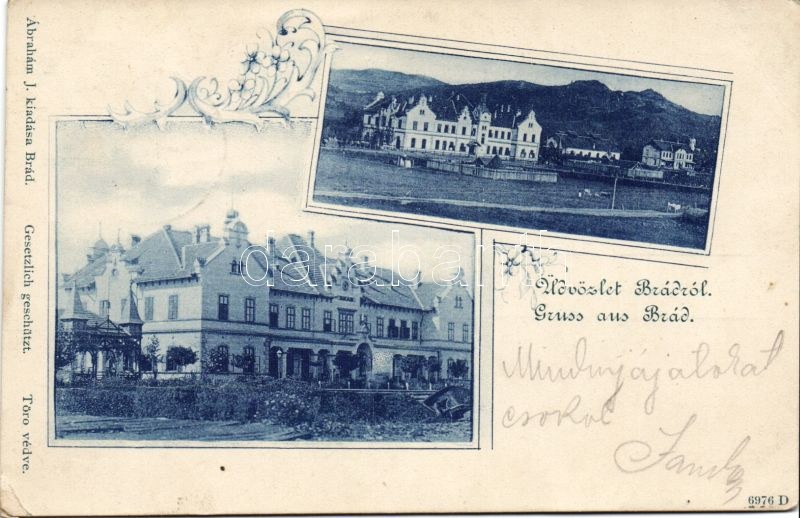 Ábrahám J. kiadása Brád. Gesetzlich geschützt. Törv védve.
darabanth
Üdvözlet Brádról.
Gruss aus Brád.
Mindnyájatokat
csokol
6976 D